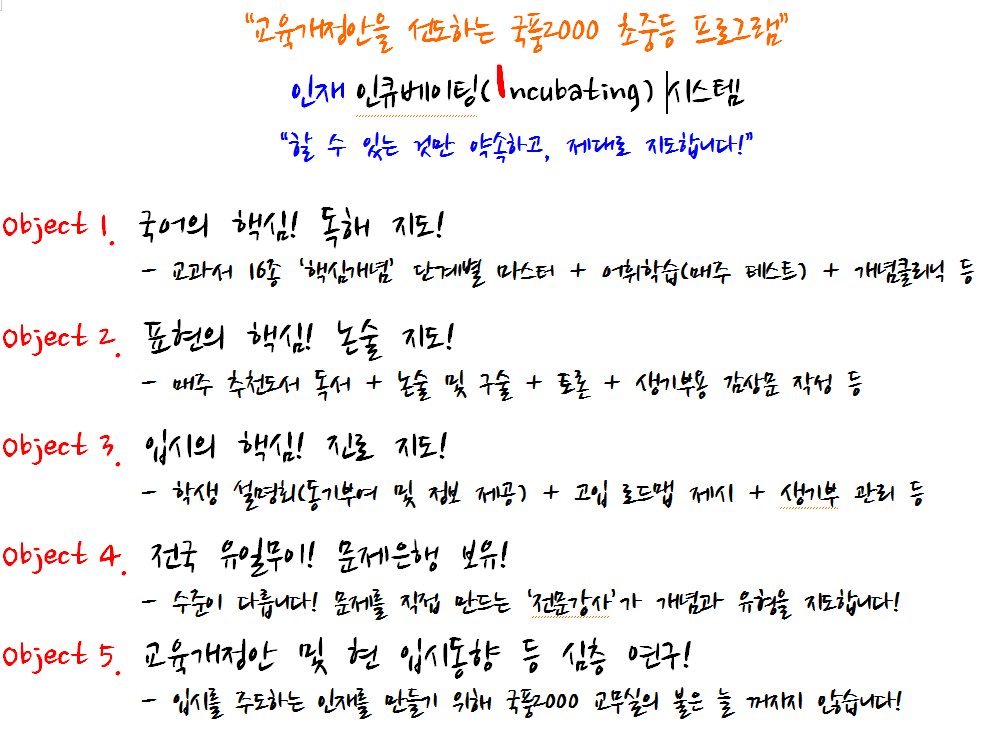 “교육개정안을 선도하는 국풍2000 초중등 프로그램”
인재 인큐베이팅(Incubating) 시스템
“할 수 있는 것만 약속하고, 제대로 지도합니다!”
Object 1. 국어의 핵심! 독해 지도!
- 교과서 16종 ‘핵심개념’ 단계별 마스터 + 어휘학습(매주 테스트) + 개념클리닉 등
Object 2. 표현의 핵심! 논술 지도!
- 매주 추천도서 독서 + 논술 및 구술 + 토론 + 생기부용 감상문 작성 등
Object 3. 입시의 핵심! 진로 지도!
- 학생 설명회(동기부여 및 정보 제공) + 고입 로드맵 제시 + 생기부 관리 등
Object 4. 전국 유일무이! 문제은행 보유!
- 수준이 다릅니다! 문제를 직접 만드는 ‘전문강사’가 개념과 유형을 지도합니다!
Object 5. 교육개정안 및 현 입시동향 등 심층 연구!
- 입시를 주도하는 인재를 만들기 위해 국풍2000 교무실의 불은 늘 꺼지지 않습니다!